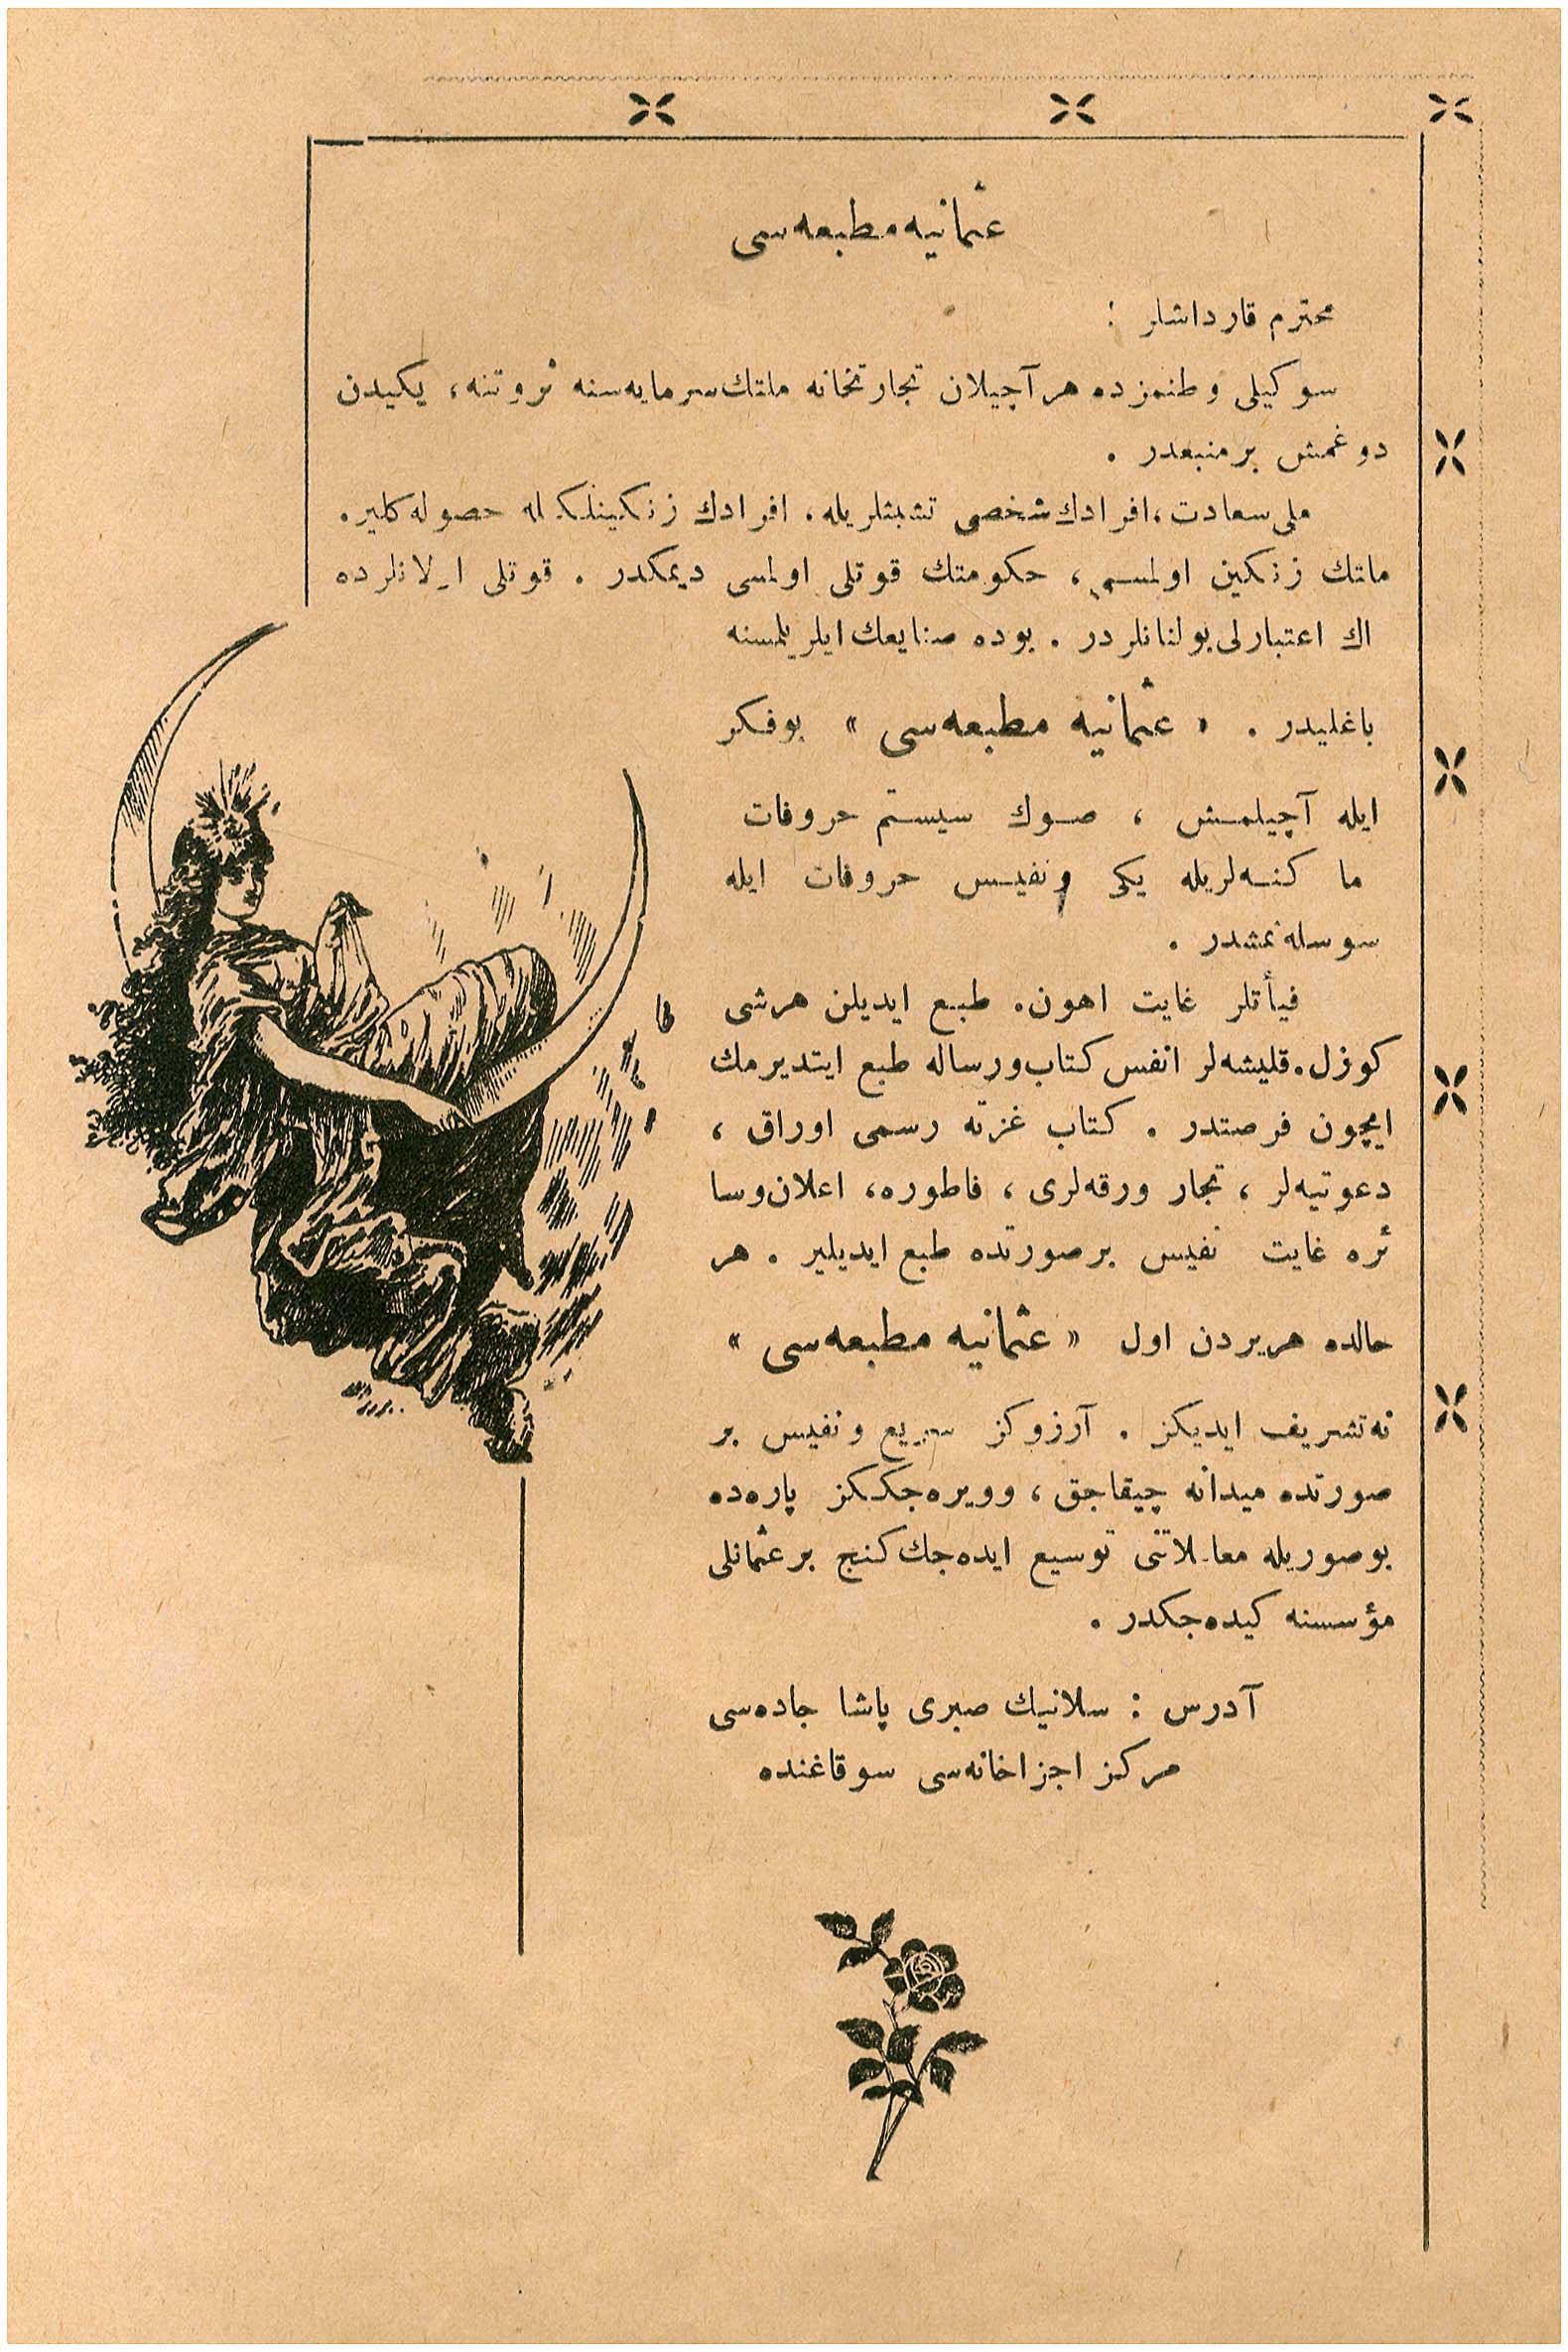 عثمانیه مطبعه‌سی
محترم قارداشلر :
سوكیلی وطنمزده هرآچیلان تجارتخانه ملتك سرمایه‌سنه ثروتنه، یكیدن
دوغمش برمنبعدر .
ملی سعادت، افرادك شخصی تشبثلریله، افرادك زنكینلكله حصوله كلیر.
ملتك زنكین اولمسی، حكومتك قوتلی اولمسی دیمكدر . قوتلی اولانلرده
اك اعتبارلی بولنانلردر . بوده صنایعك ایلریلمسنه
باغلیدر . « عثمانیه مطبعه‌سی » بوفكر
ایله آچیلمش ، صوك سیستم حروفات
ماكنه‌لریله یكی ونفیس حروفات ایله
سوسلەنمشدر .
فیأتلر غایت اهون. طبع ایدیلن هرشی
كوزل. قلیشه‌لر انفس كتاب ورساله طبع ایتدیرمك
ایچون فرصتدر . كتاب غزته رسمی اوراق ،
دعوتیه‌لر ، تجار ورقه‌لری ، فاطوره، اعلان وسا
ئره غایت نفیس برصورتده طبع ایدیلیر . هر
حالده هریردن اول « عثمانیه مطبعه‌سی »
نه تشریف ایدیكز . آرزوكز سریع ونفیس بر
صورتده میدانه چیقاجق ، وویره‌جككز پاره‌ده
بوصوریله معاملاتنی توسیع ایده‌جك كنج برعثمانلی
مؤسسنه كیده‌جكدر .
آدرس : سلانیك صبری پاشا جاده‌سی
مركز اجزاخانه‌سی سوقاغنده